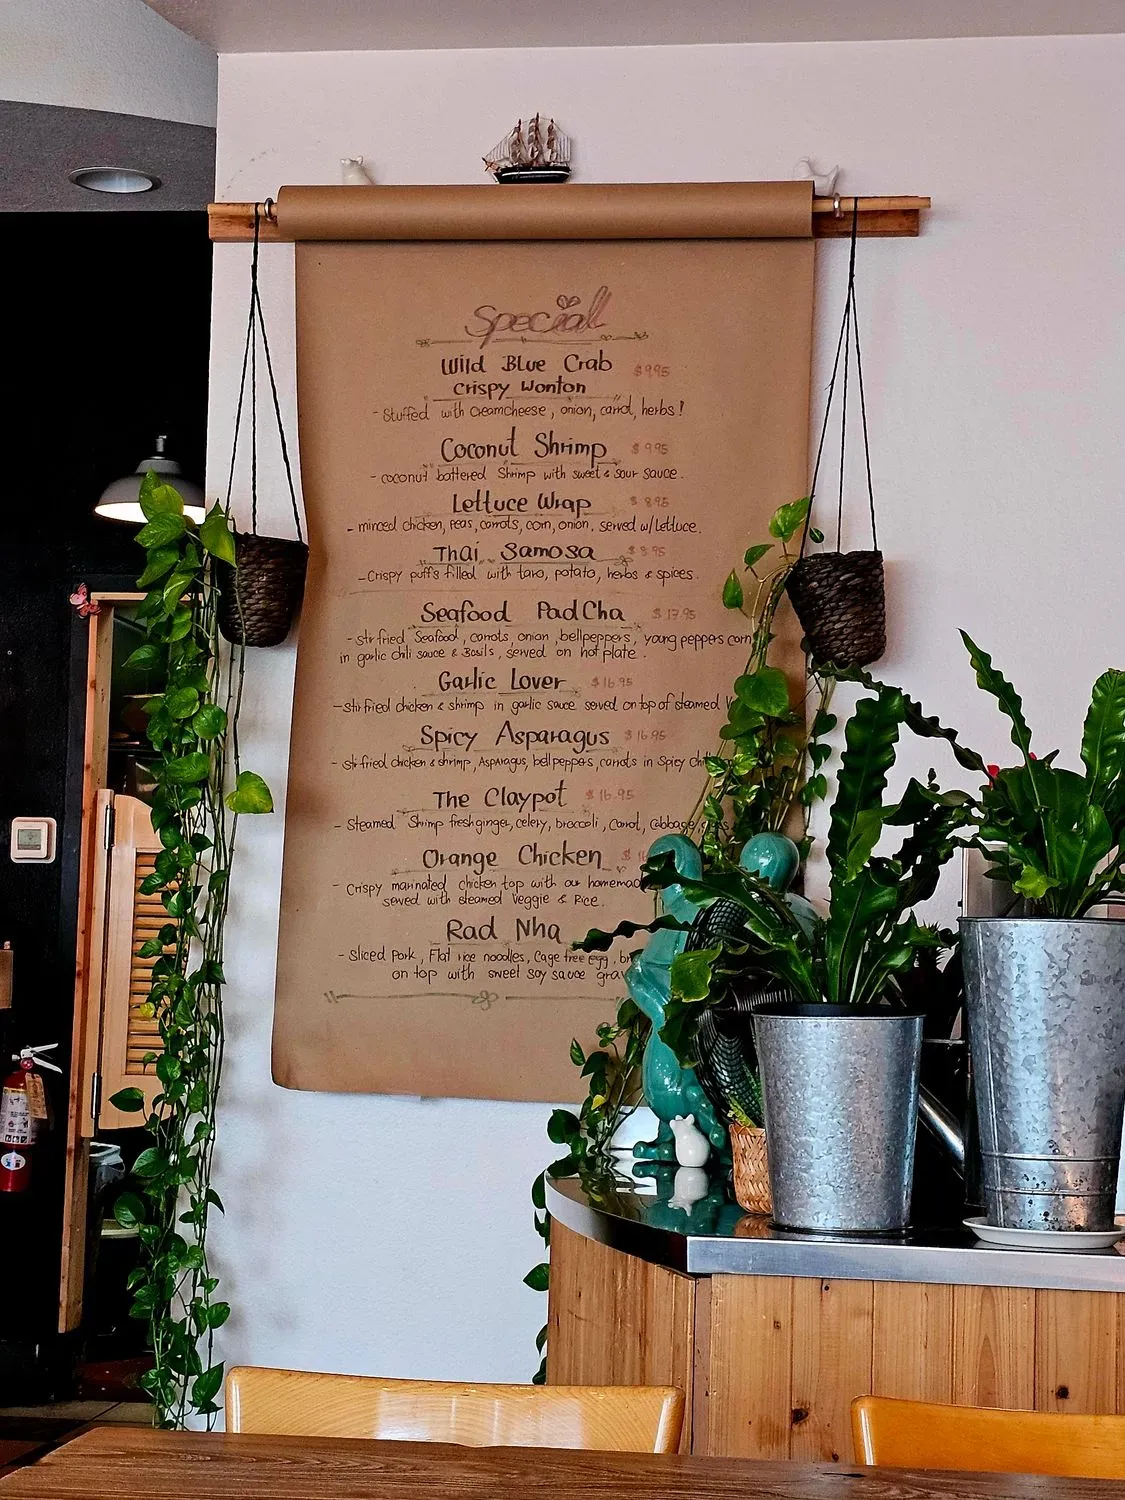 Special
Wild Blue Crab $9.95
Crispy Wonton
- Stuffed with Creamcheese, onion, carrot, herbs!
Coconut Shrimp $9.95
- coconut battered Shrimp with sweet & sour sauce.
Lettuce Wrap $8.95
- minced chicken, peas, carrots, corn, onion, served w/Lettuce.
Thai Samosa $8.95
- Crispy puffs filled with taro, potato, herbs & spices.
Seafood Pad Cha $17.95
- stir fried Seafood, carrots, onion, bellpeppers, young peppers corn
in garlic chili sauce & Basils, served on hot plate.
Garlic Lover $16.95
- Stir fried chicken & shrimp in garlic sauce served on top of steamed
Spicy Asparagus $16.95
- Stir fried chicken & shrimp, Asparagus, bellpeppers, carrots in Spicy
The Claypot $16.95
- Steamed Shrimp fresh ginger, celery, broccoli, Carrot, Cabbage,
Orange Chicken
- Crispy marinated chicken top with our
served with steamed Veggie & Rice.
Rad Nha
- Sliced Pork, Flat rice noodles, Cage free egg,
on top with sweet soy sauce